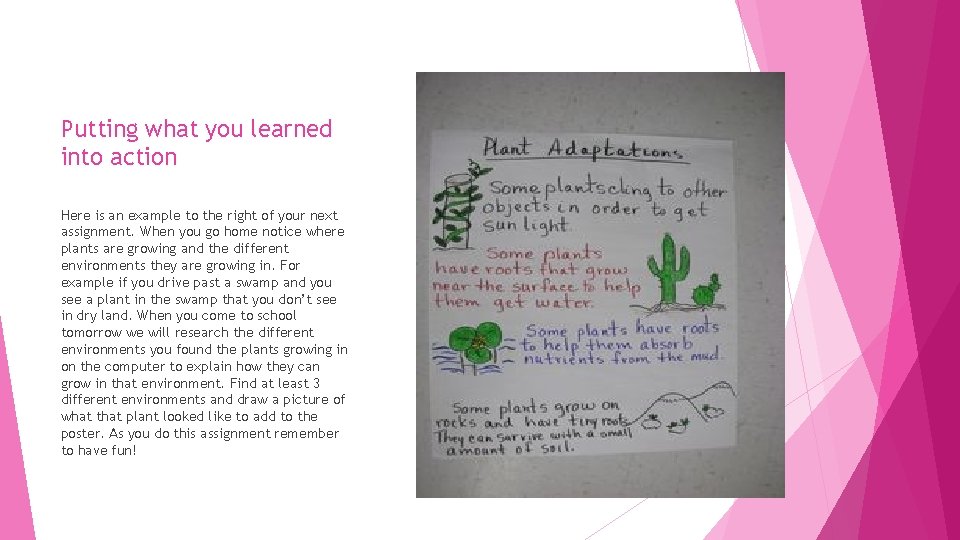 Putting what you learned
into action
Here is an example to the right of your next
assignment. When you go home notice where
plants are growing and the different
environments they are growing in. For
example if you drive past a swamp and you
see a plant in the swamp that you don’t see
in dry land. When you come to school
tomorrow we will research the different
environments you found the plants growing in
on the computer to explain how they can
grow in that environment. Find at least 3
different environments and draw a picture of
what that plant looked like to add to the
poster. As you do this assignment remember
to have fun!
Plant Adaptations
Some plants cling to other
objects in order to get
sun light.
Some plants
have roots that grow
near the surface to help
them get water.
Some plants have roots
to help them absorb
nutrients from the mud.
Some plants grow on
rocks and have tiny roots.
They can survive with a small
amount of soil.